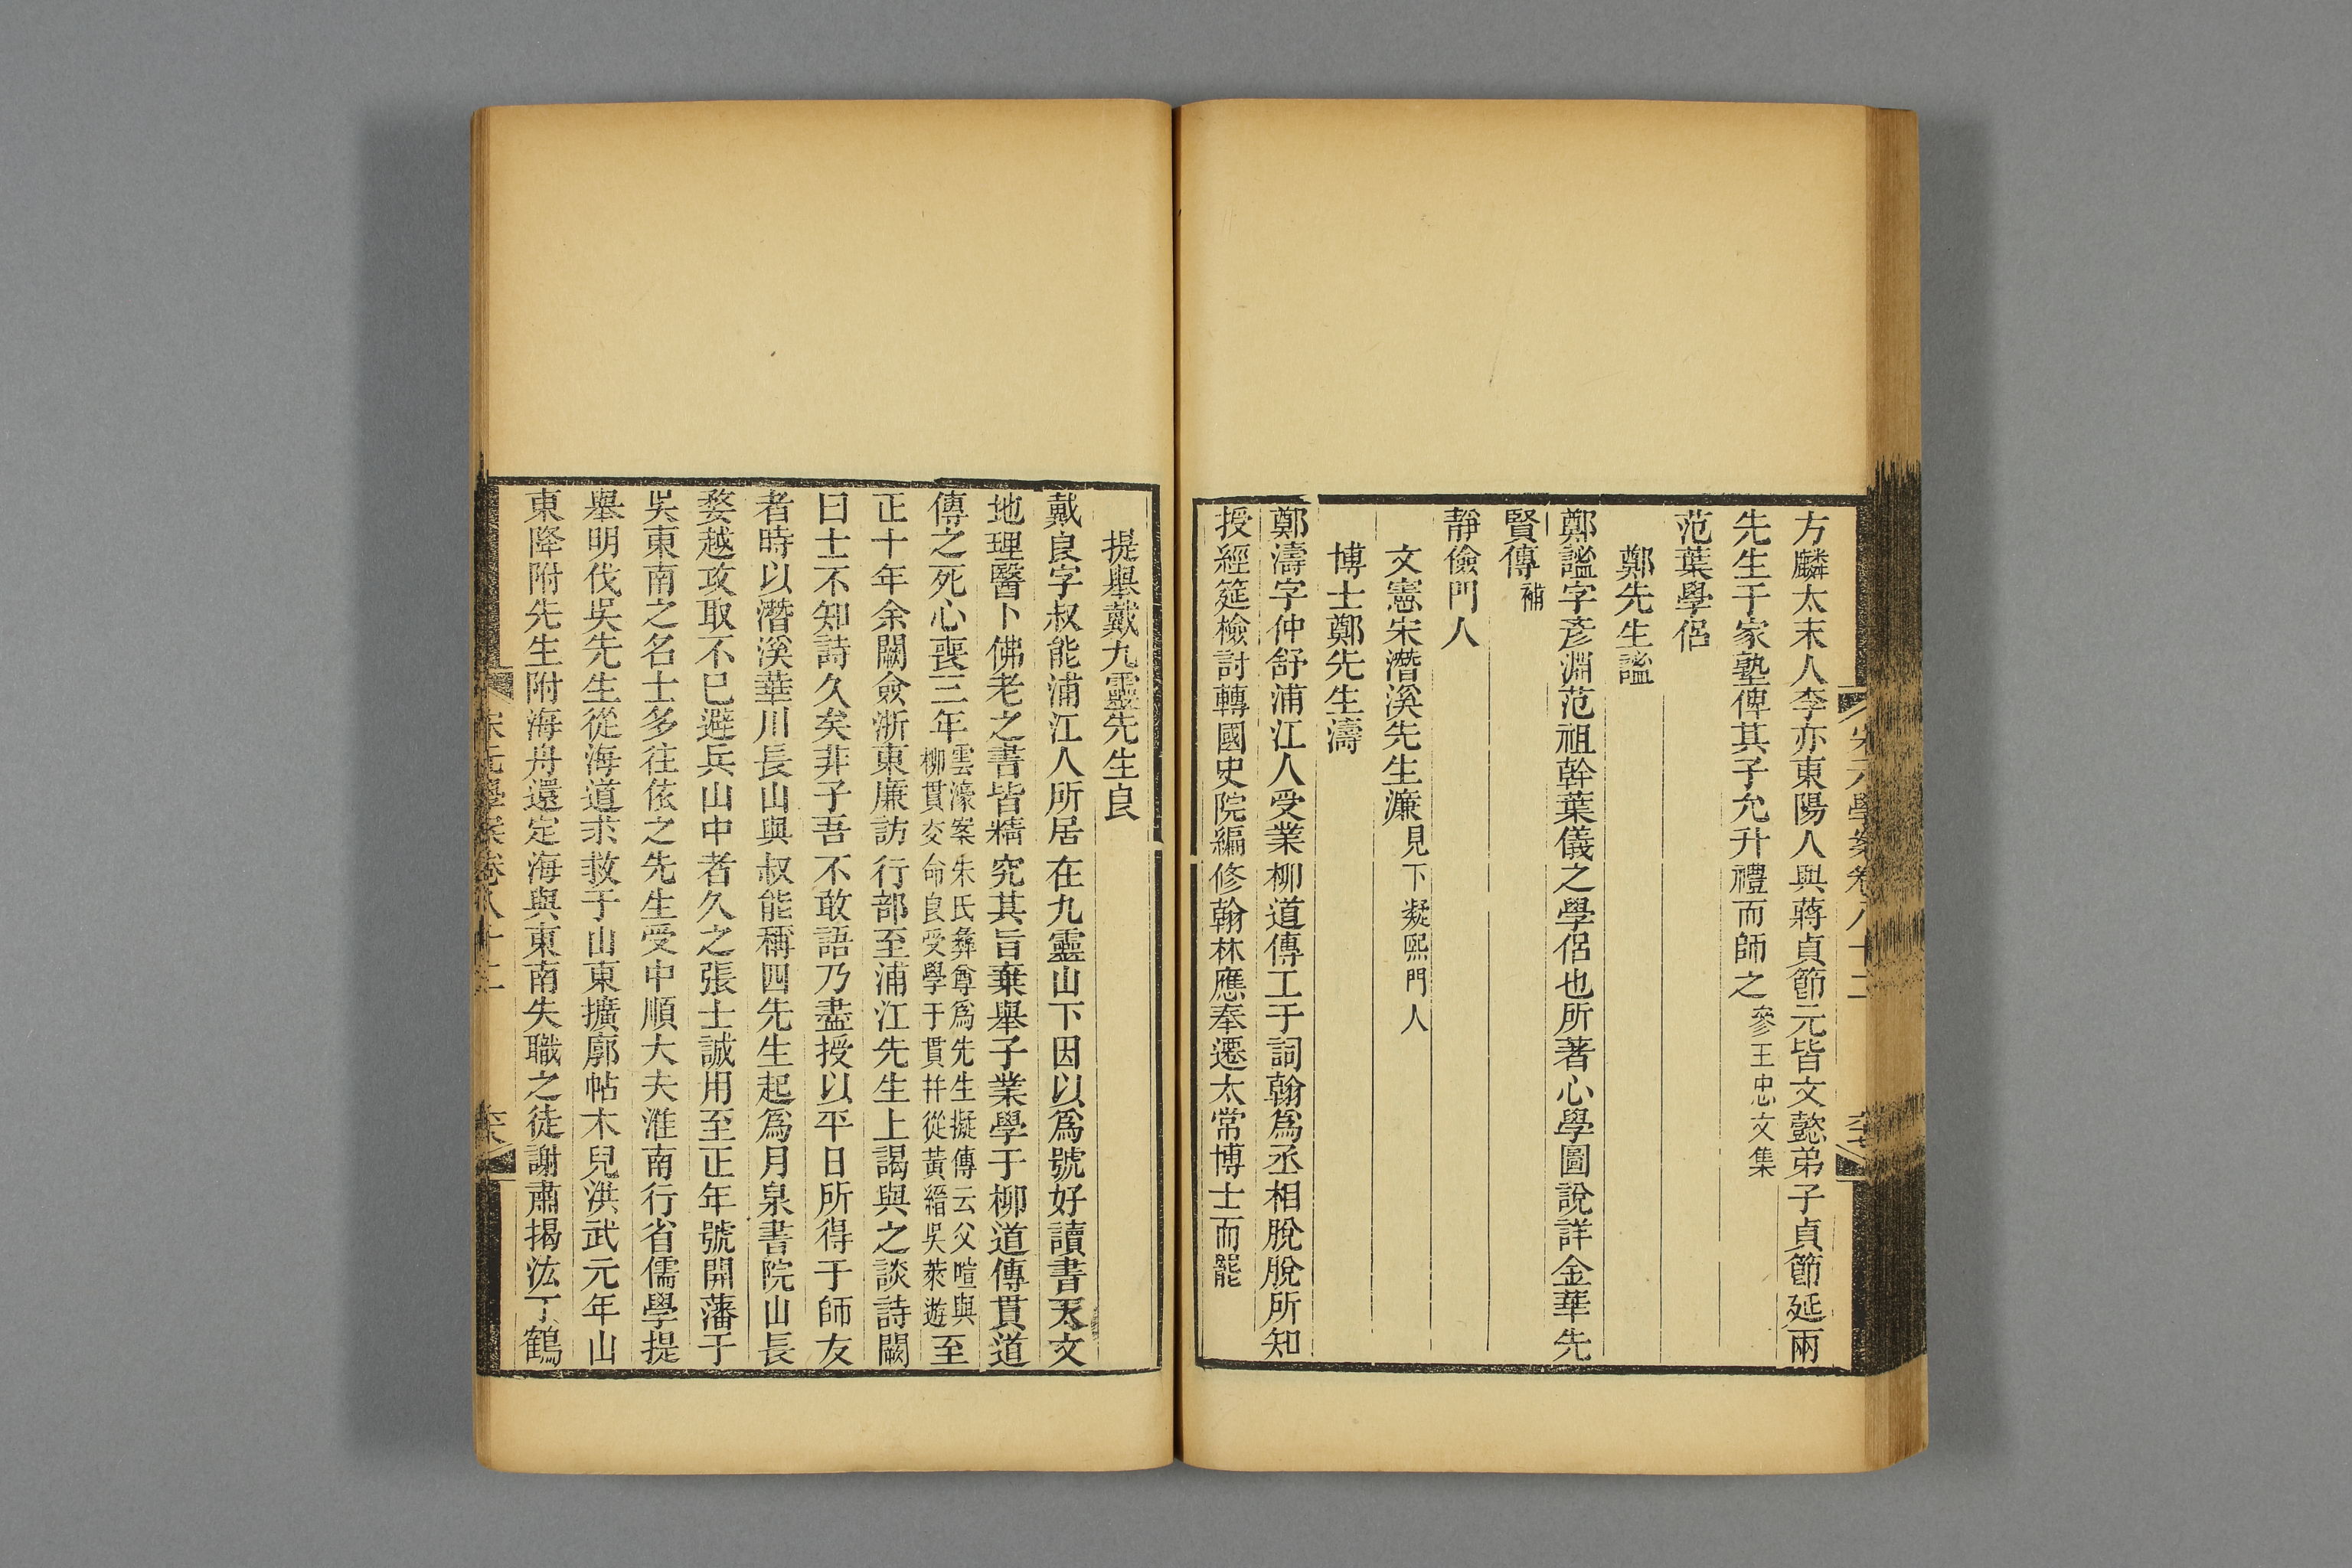 方麟太末人李亦東陽人與蔣貞節元皆文懿弟子貞節延兩
先生于家塾俾其子允升禮而師之參王忠文集
范葉學侶
鄭先生謐
鄭謐字彥淵范祖幹葉儀之學侶也所著心學圖說詳金華先
賢傳補
靜儉門人
文憲宋潛溪先生濂見下凝熙門人
博士鄭先生濤
鄭濤字仲舒浦江人受業柳道傳工于詞翰爲丞相脫脫所知
授經筵檢討轉國史院編修翰林應奉遷太常博士而罷
提舉戴九靈先生良
戴良字叔能浦江人所居在九靈山下因以爲號好讀書天文
地理醫卜佛老之書皆精究其旨棄舉子業學于柳道傳貫道
傳之死心喪三年雲濠案朱氏彝尊爲先生擬傳云父暄與柳貫交命良受學于貫幷從黃縉吳萊遊至
正十年余闕僉浙東廉訪行部至浦江先生上謁與之談詩闕
曰士不知詩久矣非子吾不敢語乃盡授以平日所得于師友
者時以潛溪華川長山與叔能稱四先生起爲月泉書院山長
婺越攻取不已避兵山中者久之張士誠用至正年號開藩于
吳東南之名士多往依之先生受中順大夫淮南行省儒學提
舉明伐吳先生從海道求救于山東擴廓帖木兒洪武元年山
東降附先生附海舟還定海與東南失職之徒謝肅揭汯丁鶴
宋元學案卷八十二